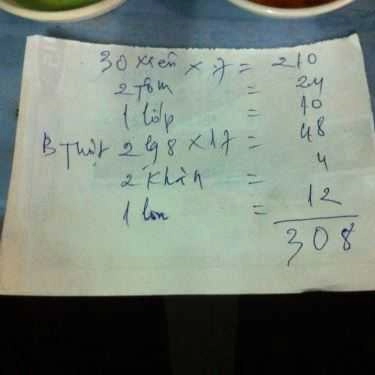 30 xiên x 7 = 210
2 tôm = 24
1 lốp = 10
B thịt 2lg8 x 17 = 48
2 khăn = 4
1 lon = 12
308